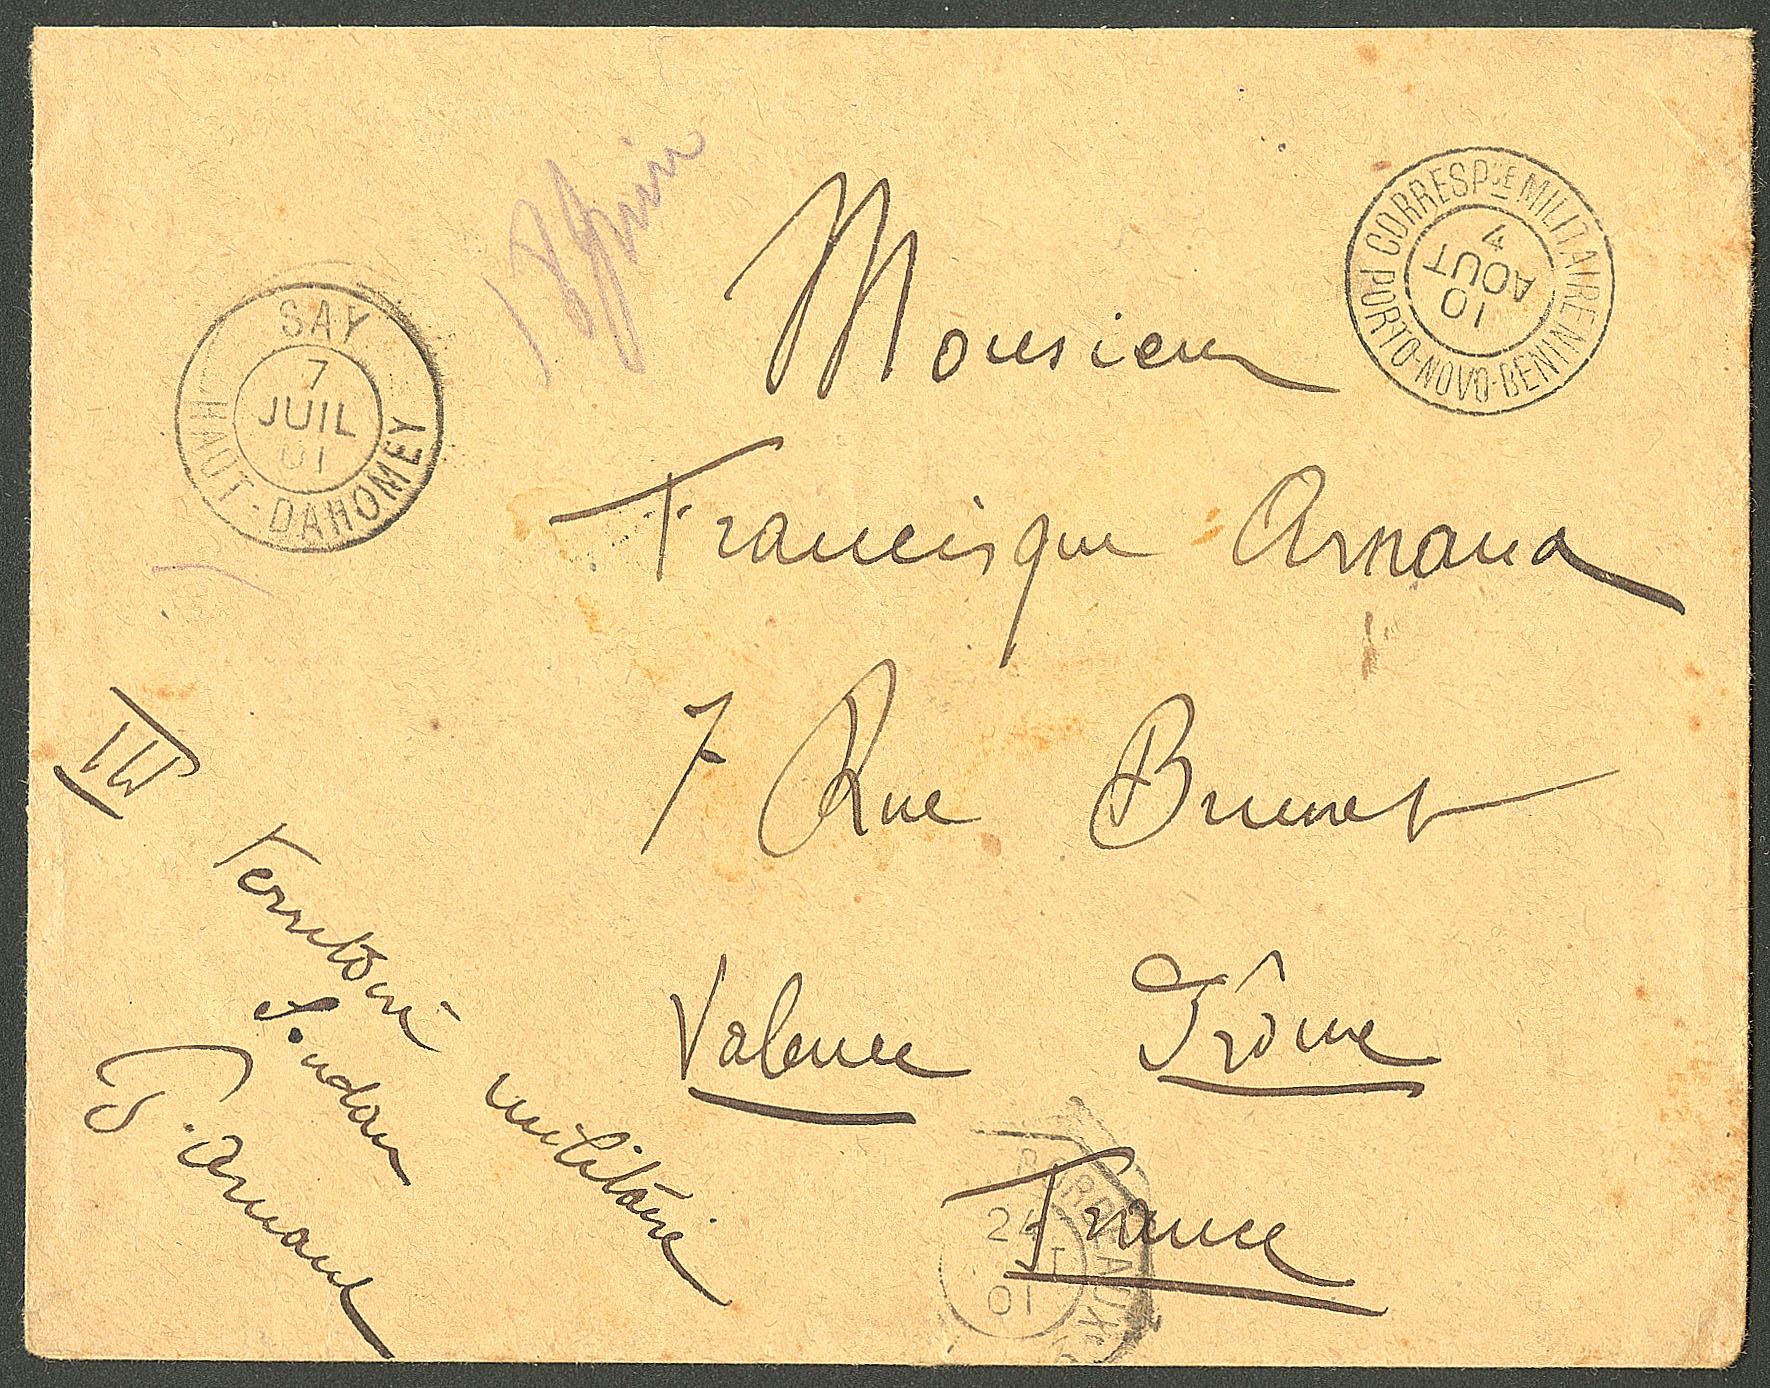 SAY
7
JUIL
01
HAUT-DAHOMEY
CORRESPCE MILITAIRE
4
AOUT
01
PORTO-NOVO-BENIN
Monsieur
Francisque Arnaud
7 Rue Brunet
Valence Drôme
France
III
Territoire militaire
Soudan
Arnaud
BORDEAUX
24
01